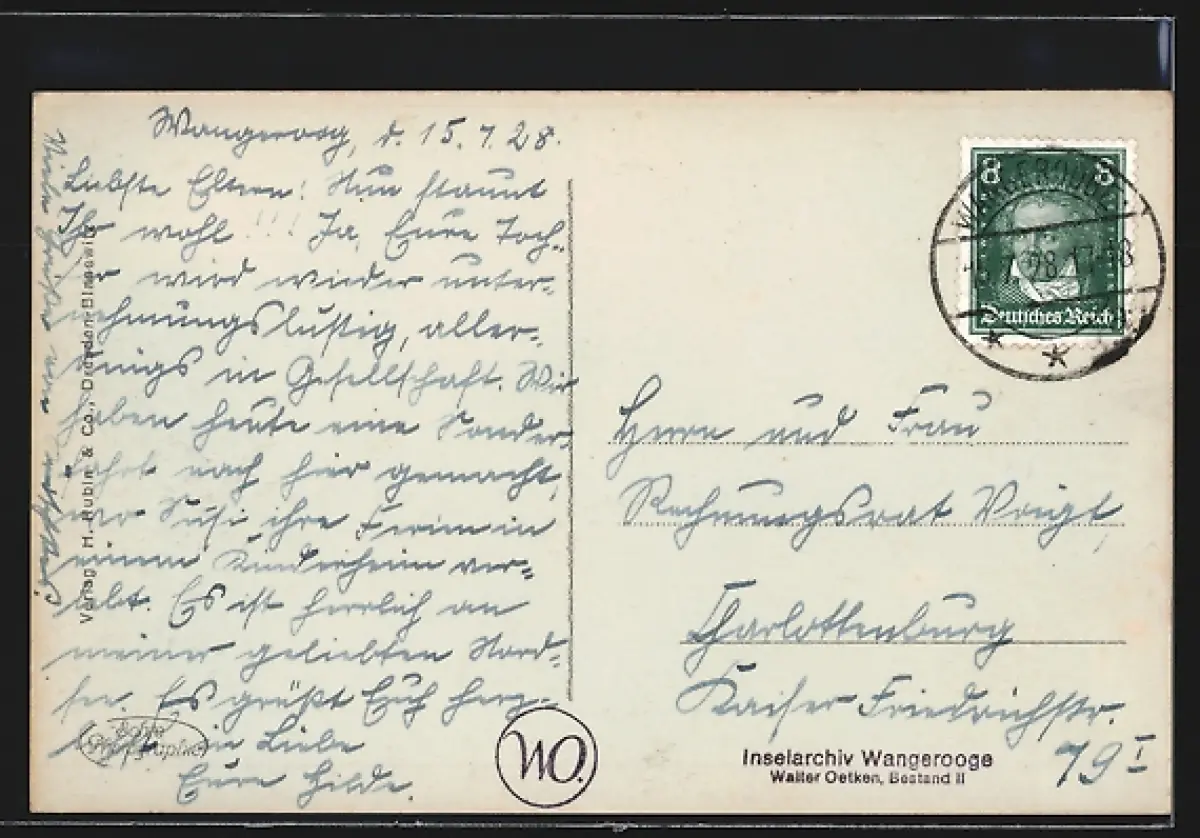 Wangeroog, d. 15.7.28.
Liebste Eltern! Nun staunt
Ihr wohl!!! Ja, Eure Toch-
ter wird wieder unter-
nehmungslustig, aller-
dings in Gesellschaft. Wir
haben heute eine Sonder-
fahrt nach hier gemacht,
wo Susi ihre Ferien in
einem Kinderheim ver-
lebt. Es ist herrlich an
meiner geliebten Nord-
see. Es grüßt Euch herz-
lichst in Liebe
Eure Hilde.
Viele Grüße von
Verlag H. Rubin & Co., Dresden-Blasewitz
Echte Photographie
WO.
8 8
Deutsches Reich
WANGEROOGE
28.17-18
Herrn und Frau
Rechnungsrat Voigt,
Charlottenburg
Kaiser Friedrichstr.
79 I
Inselarchiv Wangerooge
Walter Oetken, Bestand II